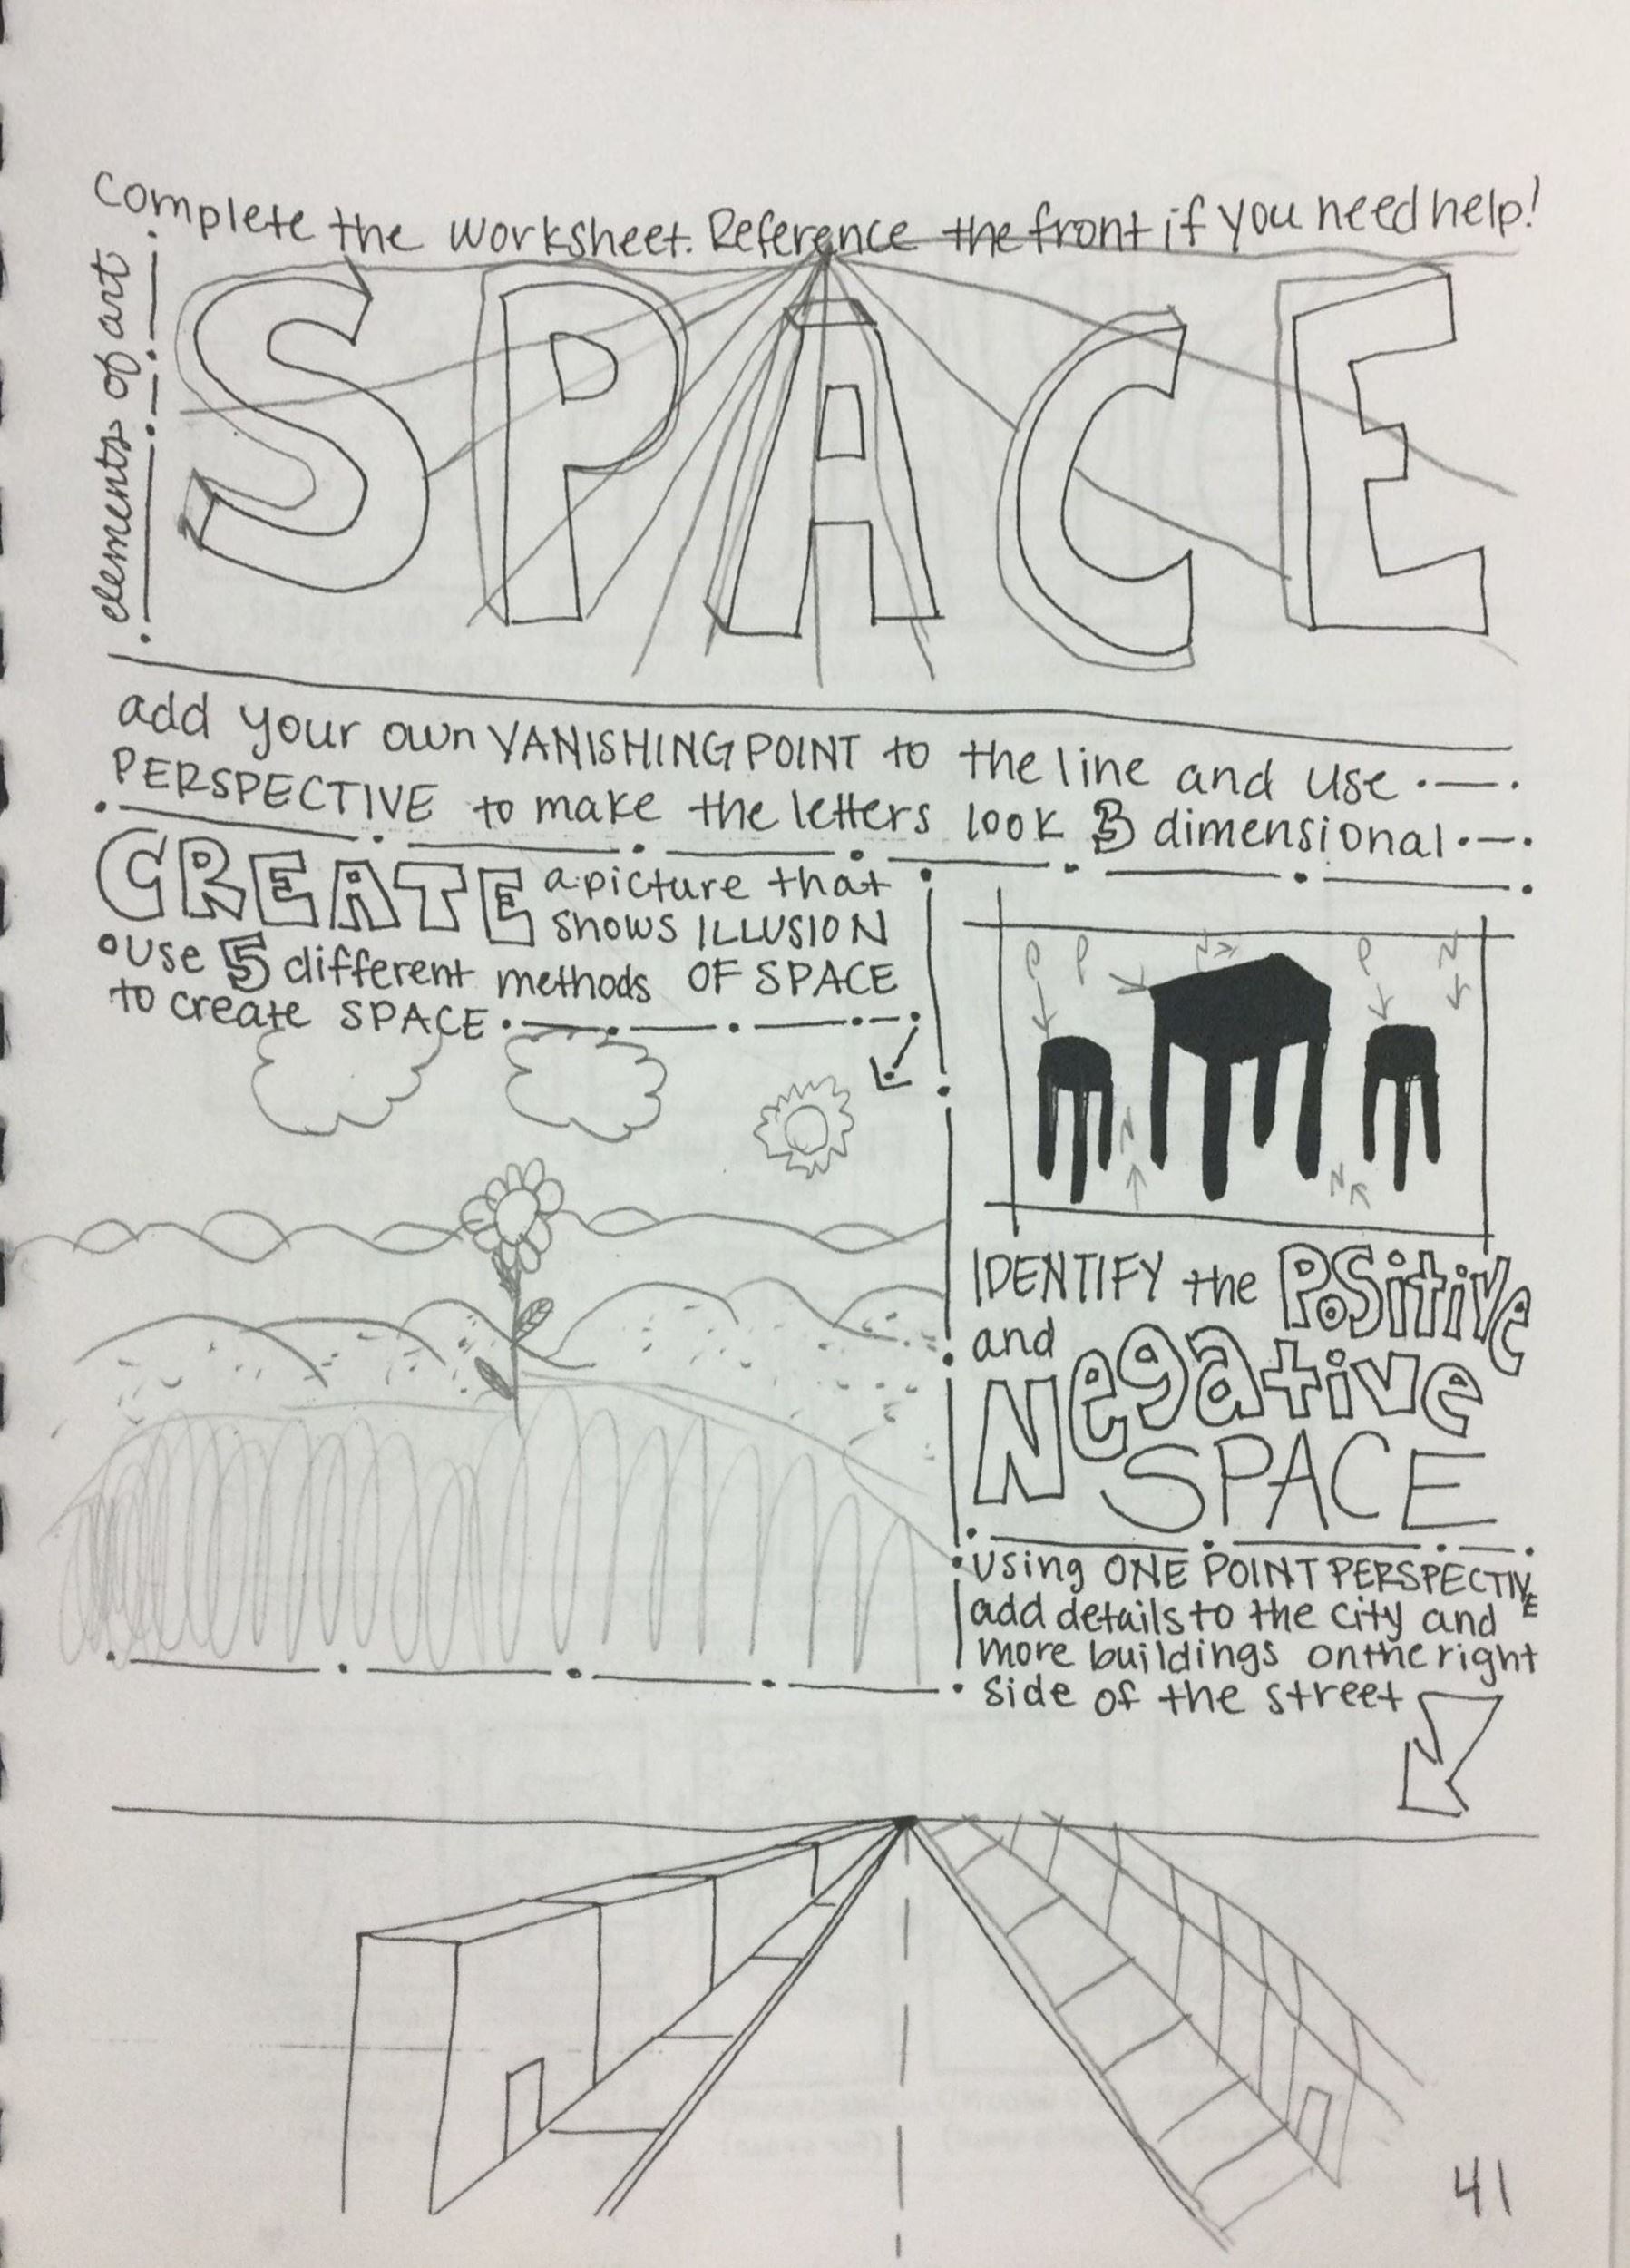 Complete the worksheet. Reference the front if you need help!
elements of art
SPACE
add your own VANISHING POINT to the line and use
PERSPECTIVE to make the letters look 3 dimensional
CREATE a picture that
shows ILLUSION
OF SPACE
• use 5 different methods
to create SPACE
P P N P N
N N
IDENTIFY the Positive
and
Negative
SPACE
• using ONE POINT PERSPECTIVE
add details to the city and
more buildings on the right
side of the street
41